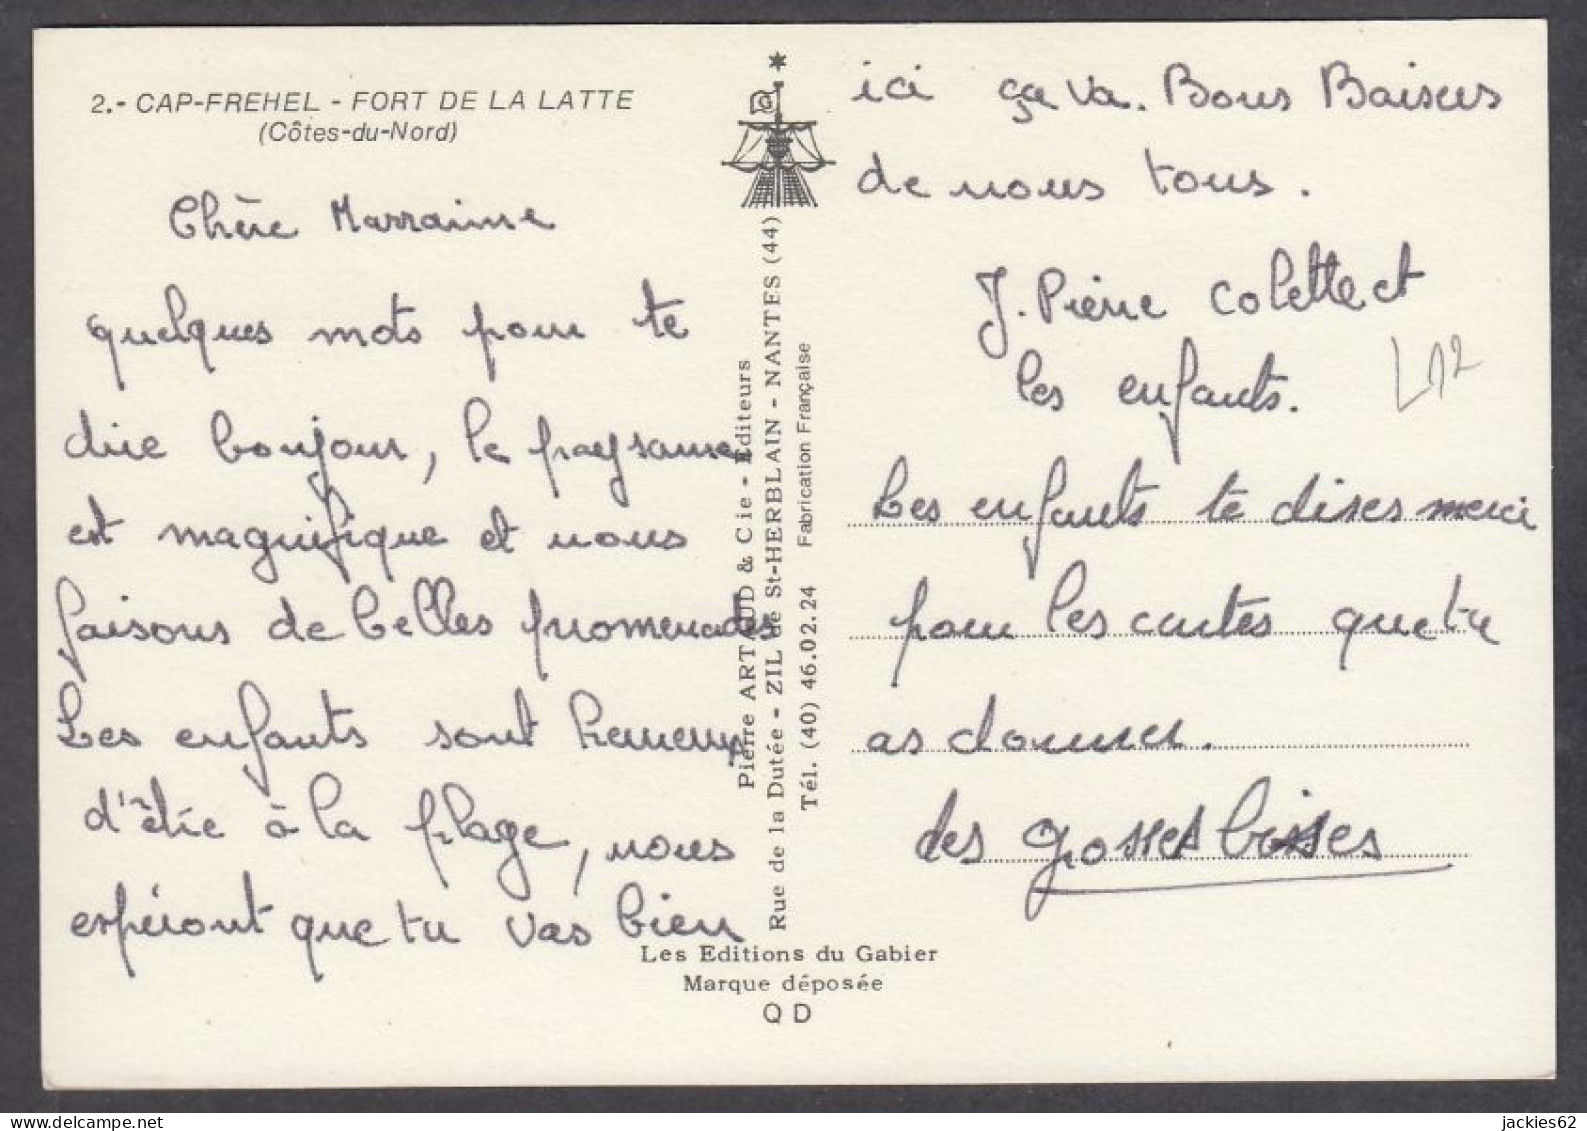 2.- CAP-FREHEL - FORT DE LA LATTE
(Côtes-du-Nord)
Chère Marraine
quelques mots pour te
dire boujour, le paysame
est magnifique et nous
faisons de belles promenades
Les enfants sont heureux
d'êtie à la plage, nous
espéront que tu vas bien
ici ça va. Bons Baisers
de nous tous.
J. Pierre Colette et
les enfants.
L12
Les enfants te dises merci
pour les cartes que tu
as donner.
des grosses bises
Pierre ARTAUD & Cie - Editeurs
Rue de la Dutée - ZIL de St-HERBLAIN - NANTES (44)
Tél. (40) 46.02.24 Fabrication Française
Les Editions du Gabier
Marque déposée
Q D
www.delcampe.net
jackies62